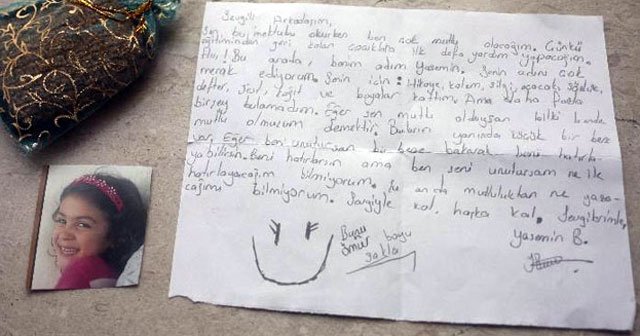 Sevgili Arkadaşım,
Sen bu mektubu okurken ben çok mutlu olacağım. Çünkü
eğitiminden geri kalan çocuklara ilk defa yardım yapacağım.
Aa, Bu arada, benim adım Yasemin. Senin adını çok
merak ediyorum. Senin için: Hikaye, kalem, silgi, açacak, sözlük,
defter, ve boyalar kattım. Ama daha fazla
birşey bulamadım. Eğer sen mutlu olduysan bilki bende
mutlu olmuşum demektir. Bunların yanında küçük bir bez
var. Eğer beni unutursan bu beze bakarak beni hatırla-
yabilirsin. Beni hatırlarsın ama ben seni unutursam ne ile
hatırlayacağım bilmiyorum. Şu anda mutluluktan ne yaza-
cağımı bilmiyorum. Sevgiyle kal, hoşça kal. Sevgilerimle,
Yasemin B.
Bunu
ömür boyu
sakla